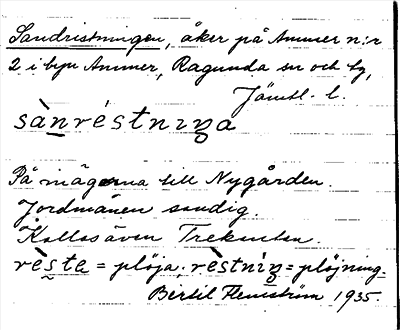 Sandristningen, åker på Ammer n:r
2 i byn Ammer, Ragunda sn och tg,
Jämtl. l.
sànréstnıŋa
På mägorna till Nygården.
Jordmånen sandig.
Kallas även Trekanten.
rèsta = plöja, rèstnıŋ = plöjning.
Bertil Flemström 1935.